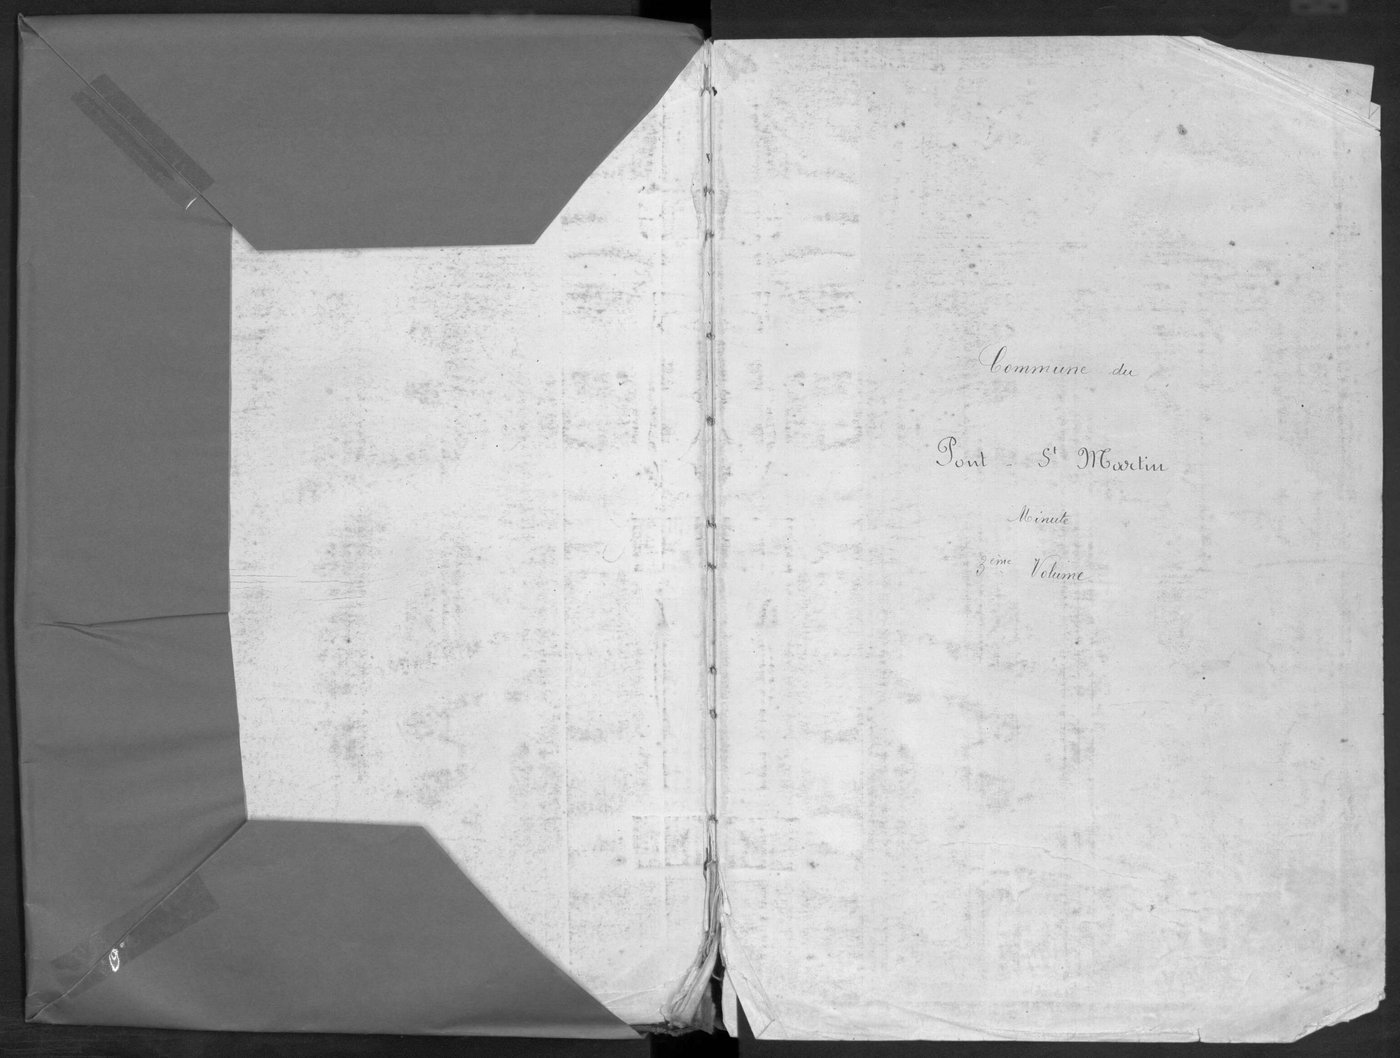 Commune du
Pont - St Martin
Minute
3ème Volume